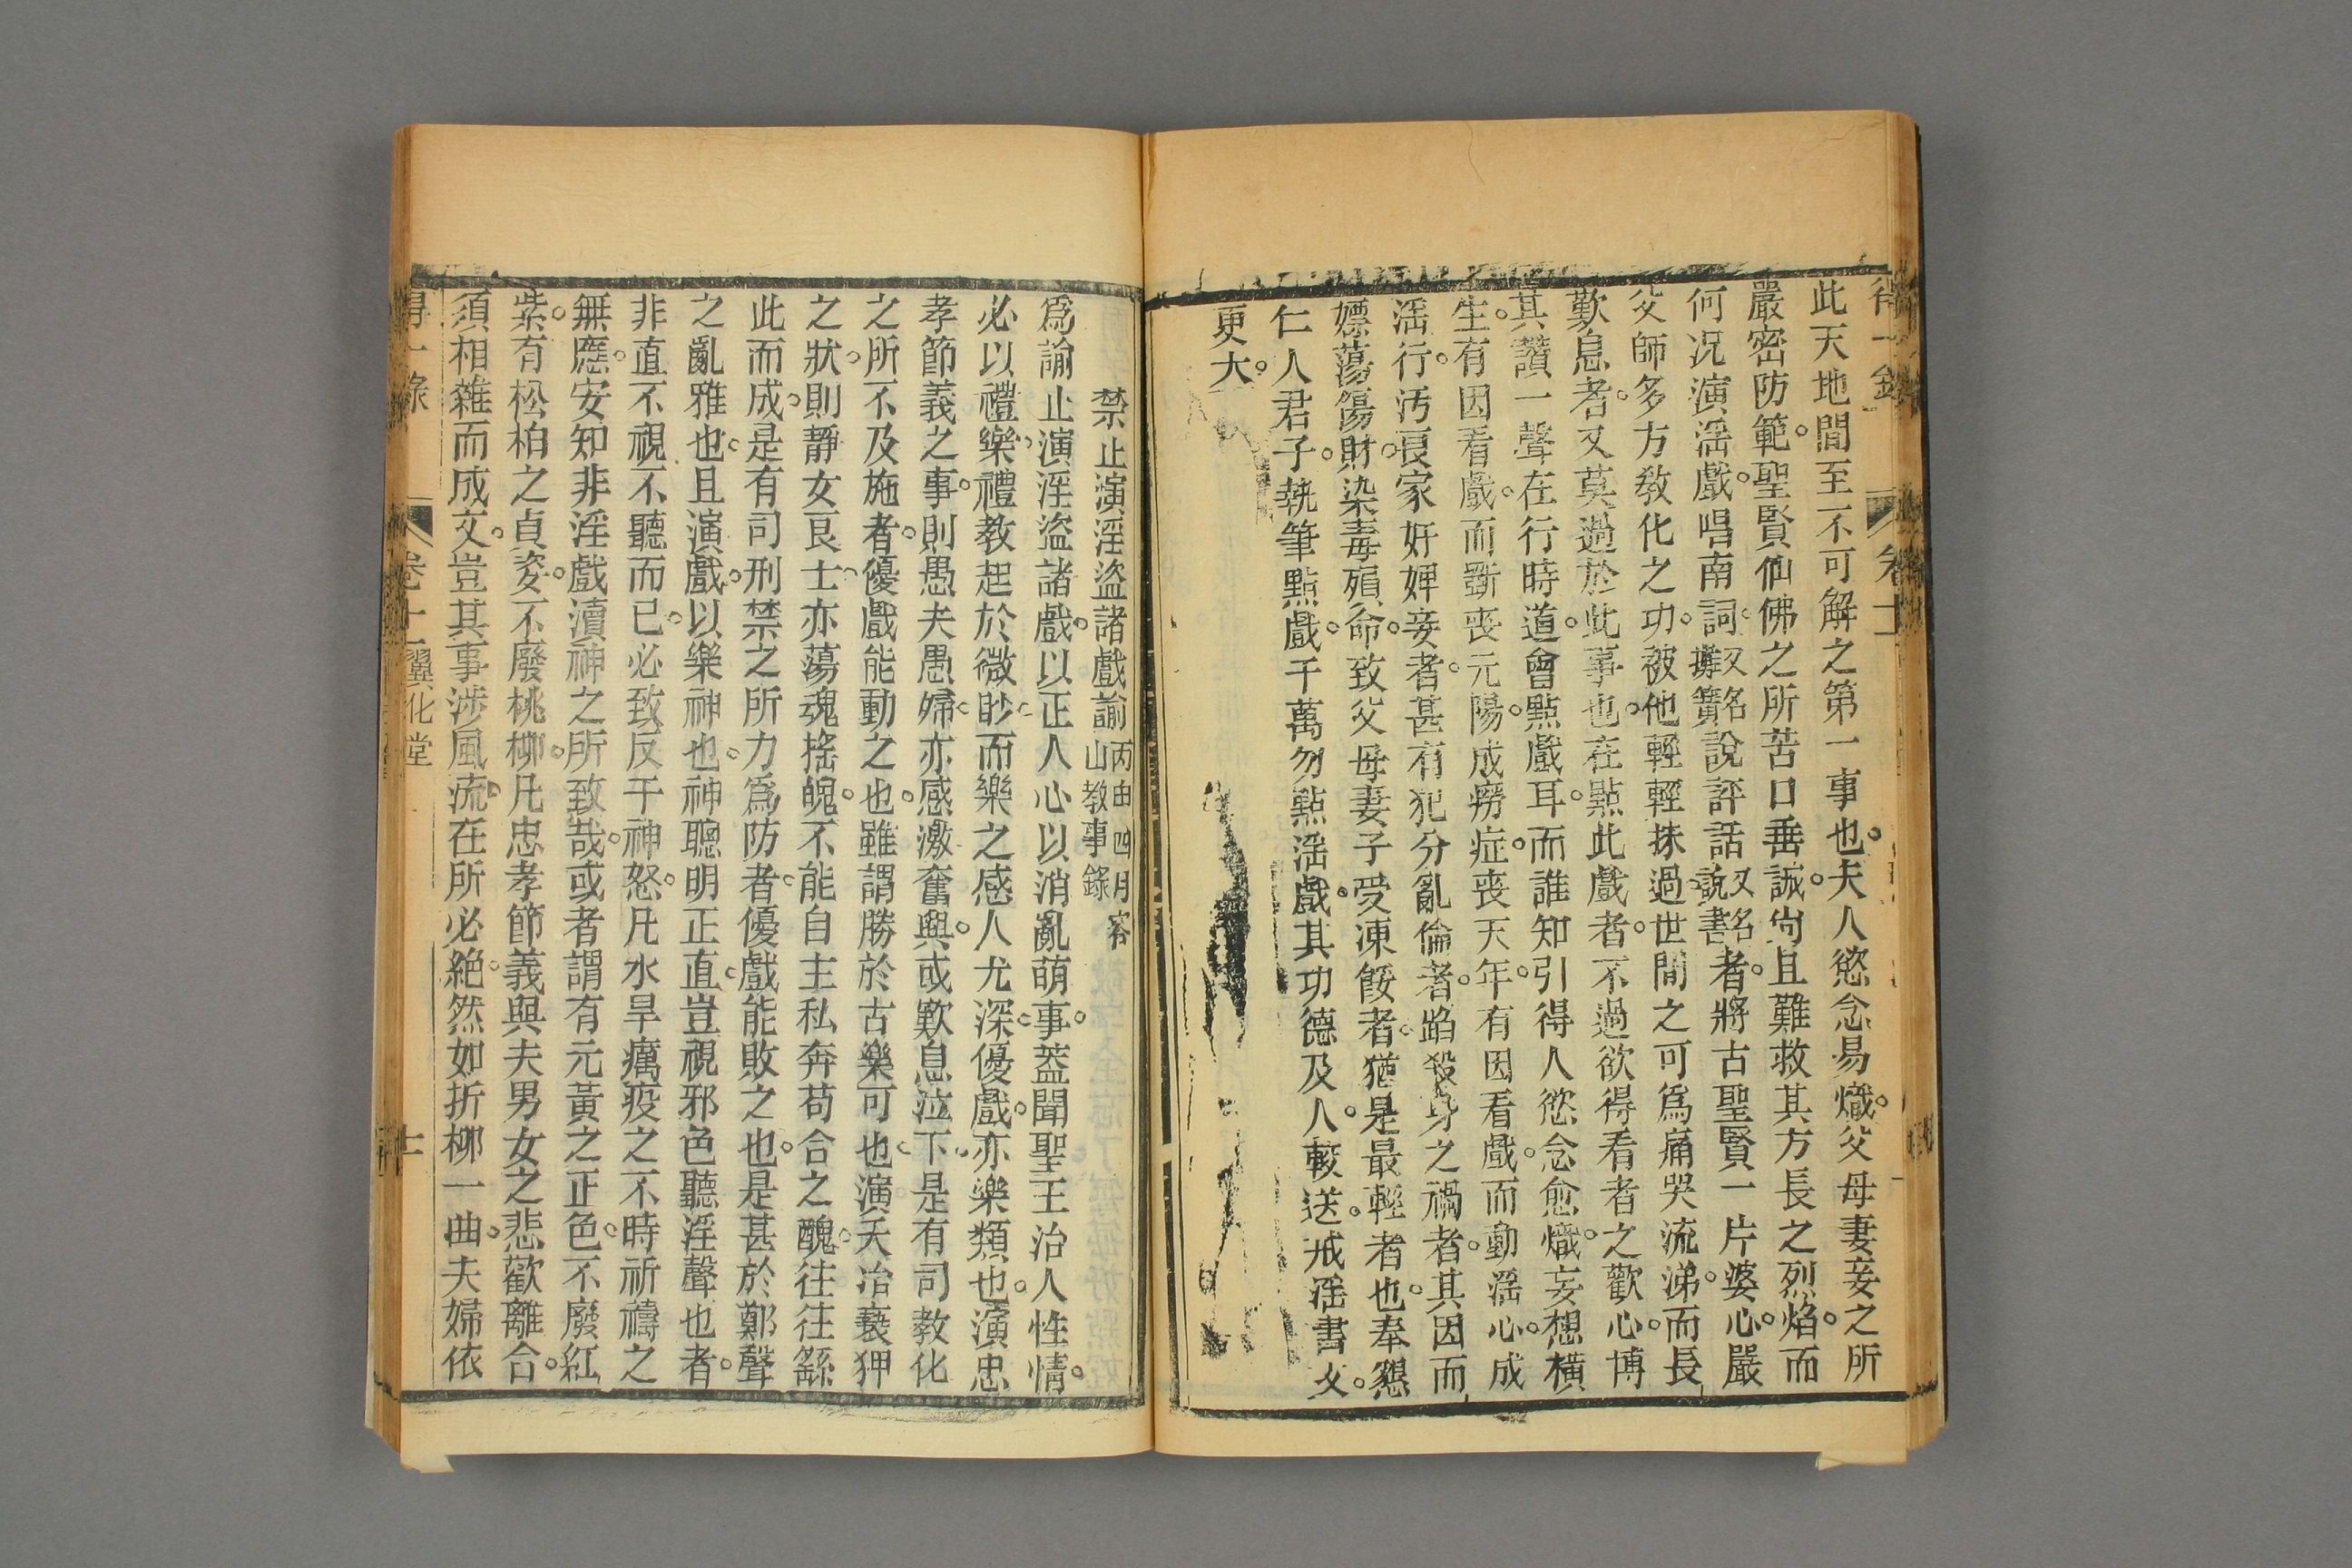 此天地間至不可解之第一事也。夫人慾念易熾。父母妻妾之所
嚴密防範。聖賢仙佛之所苦口垂誡。尙且難救其方長之烈焰。而
何况演滛戲。唱南詞。又名攤簧說評話又名說書者。將古聖賢一片婆心。嚴
父師多方敎化之功。被他輕輕抹過。世間之可爲痛哭流涕。而長
歎息者。又莫過於此事也。在點此戲者。不過欲得看者之歡心。博
其讚一聲在行時道。會點戲耳。而誰知引得人慾念愈熾。妄想橫
生。有因看戲。而斵喪元陽。成癆症。喪天年。有因看戲。而動滛心。成
滛行。汚良家奸婢妾者。甚有犯分亂倫者。蹈殺身之禍者。其因而
嫖蕩傷財。染毒殞命。致父母妻子受凍餒者。猶是最輕者也。奉懇
仁人君子。執筆點戲。千萬勿點滛戲。其功德及人。較送戒滛書文。
更大。
禁止演淫盜諸戲諭丙申四月宰山教事錄
爲諭止演淫盜諸戲。以正人心以消亂萌事。葢聞聖王治人性情。
必以禮樂。禮教起於微眇。而樂之感人尤深。優戲。亦樂類也。演忠
孝節義之事。則愚夫愚婦。亦感激奮興。或歎息泣下。是有司教化
之所不及施者。優戲能動之也。雖謂勝於古樂可也。演夭冶䙝狎
之狀。則靜女良士。亦蕩魂搖魄。不能自主私奔苟合之醜。往往繇
此而成。是有司刑禁之所力爲防者。優戲能敗之也。是甚於鄭聲
之亂雅也。且演戲。以樂神也。神聰明正直。豈視邪色聽淫聲也者。
非直不視不聽而已。必致反干神怒。凡水旱癘疫之不時祈禱之
無應。安知非淫戲瀆神之所致哉。或者謂有元黃之正色。不廢紅
紫。有松柏之貞姿。不廢桃柳。凡忠孝節義與夫男女之悲歡離合。
須相雜而成文。豈其事涉風流。在所必絕。然如折柳一曲。夫婦依
得一錄
卷十一翼化堂